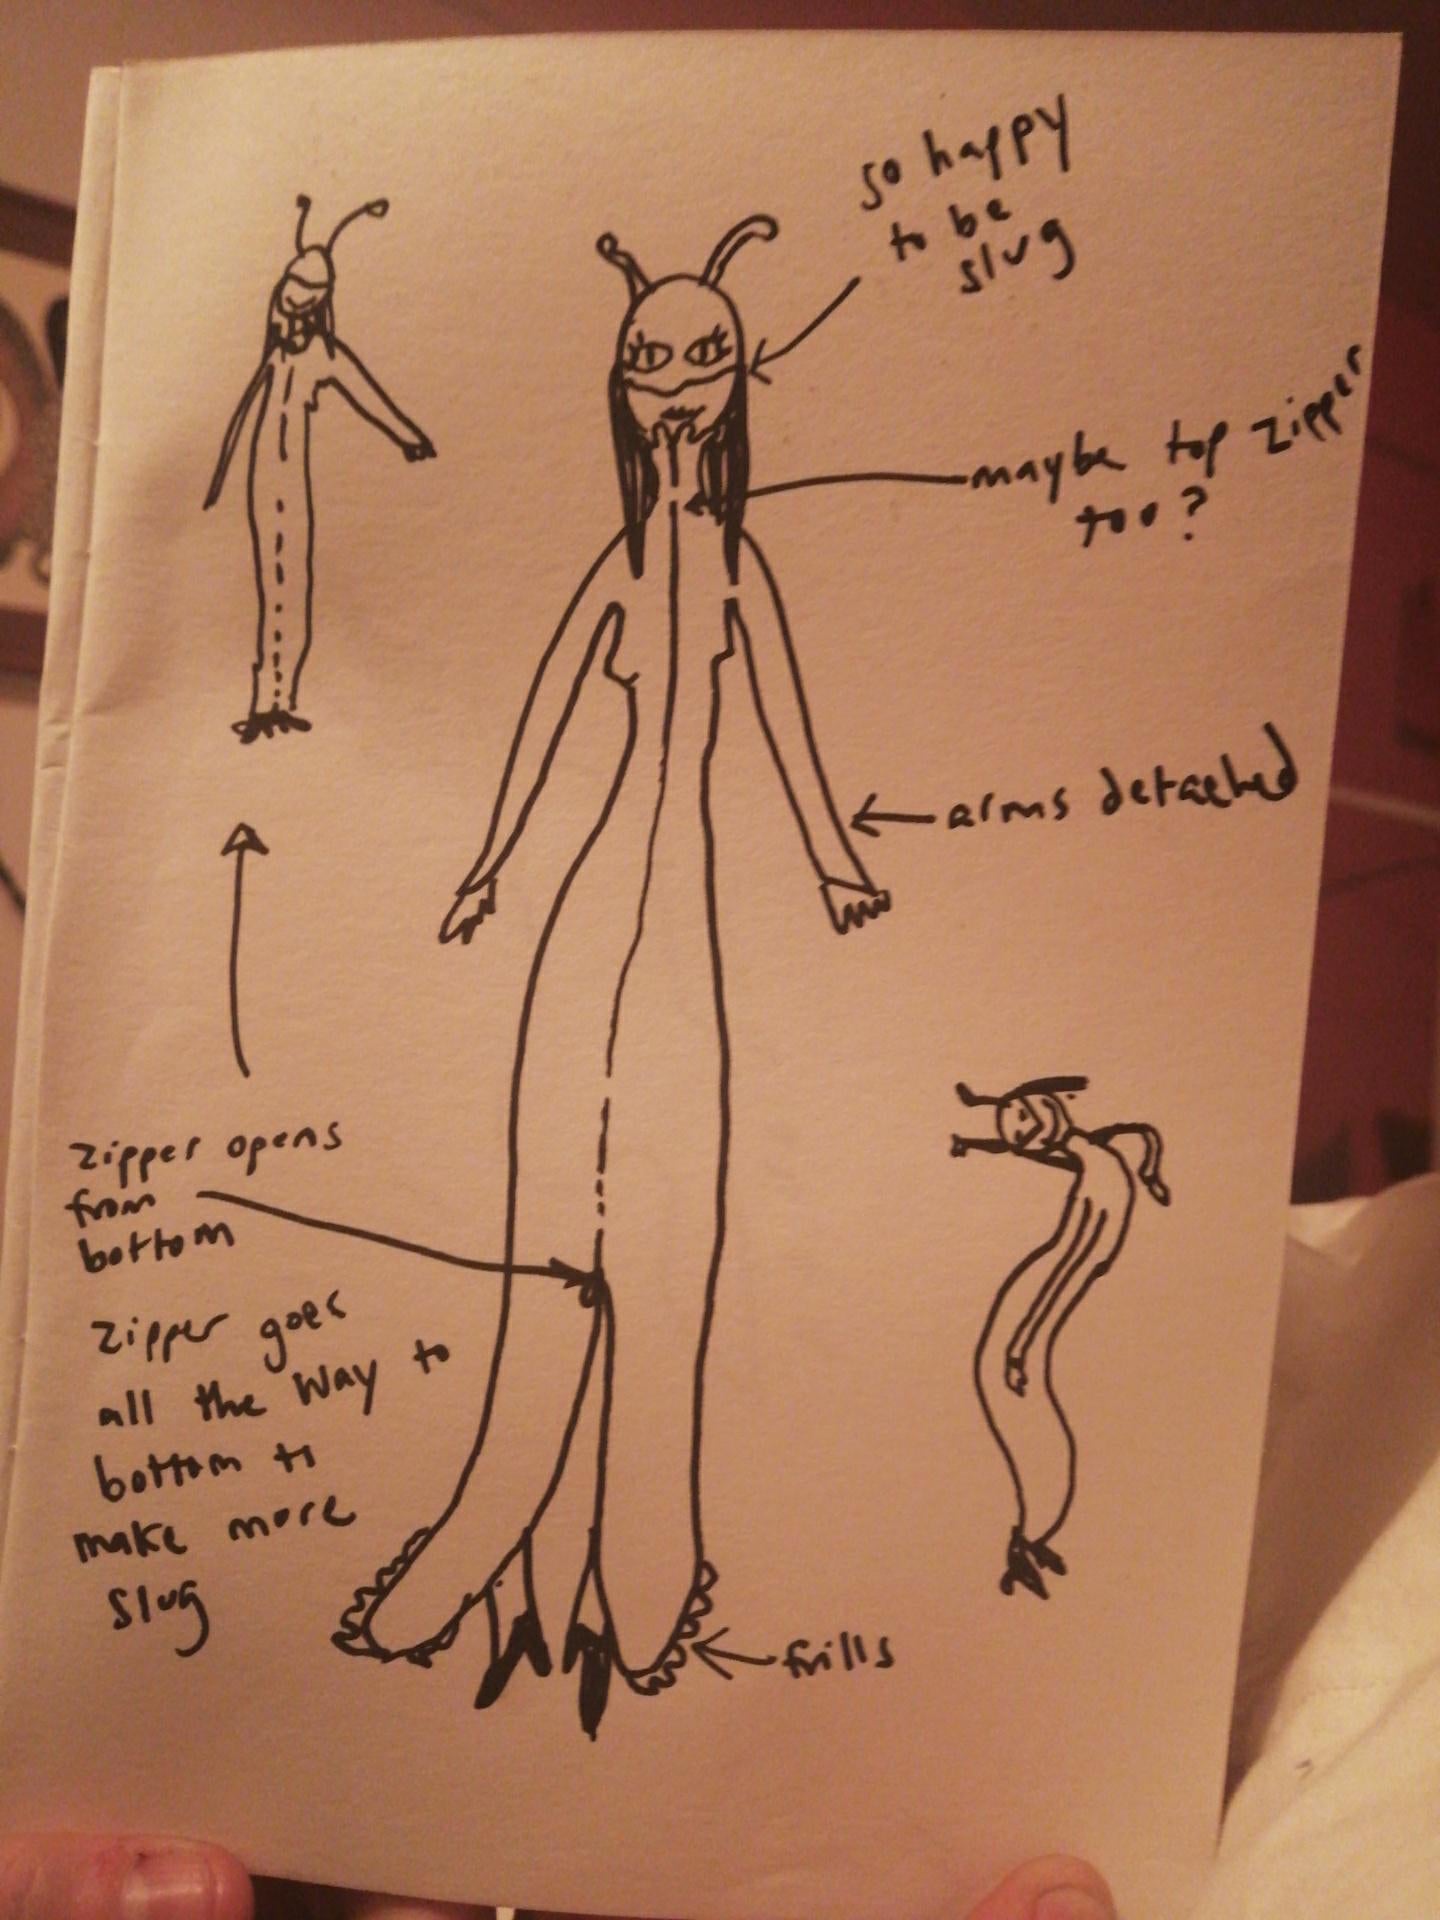 so happy
to be
slug
maybe top zipper
too?
arms detached
zipper opens
from
bottom
zipper goes
all the way to
bottom to
make more
slug
frills